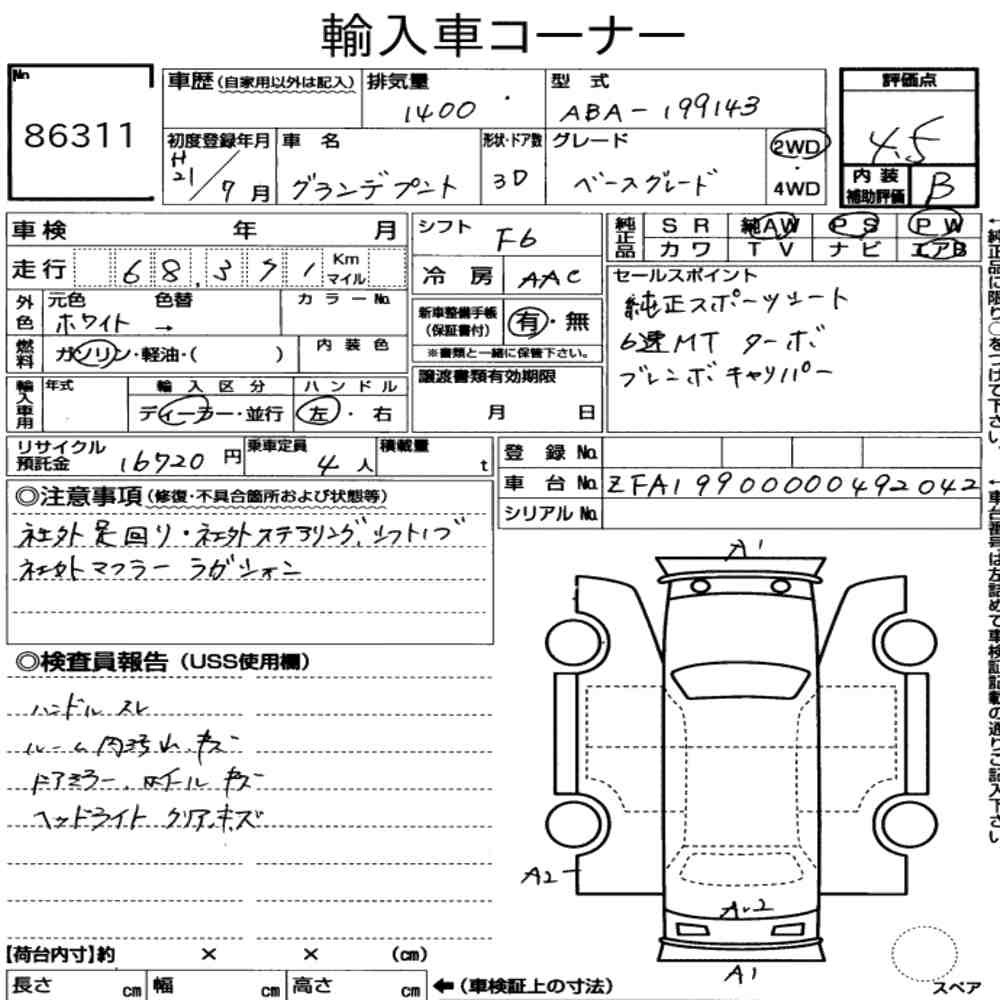 輸入車コーナー
No
86311
車歴(自家用以外は記入)
排気量
1400
型 式
ABA-199143
評価点
4.5
初度登録年月
H21/7月
車 名
グランデプント
形状・ドア数
3D
グレード
ベースグレード
2WD
・
4WD
内装
補助評価
B
車検 年 月
シフト
F6
純正品
SR 純AW PS PW
カワ TV ナビ エアB
走行 68,371 Km マイル
冷房
AAC
セールスポイント
純正スポーツシート
6速MT ターボ
ブレンボキャリパー
外色
元色 色替
ホワイト →
カラーNo.
新車整備手帳
(保証書付)
有・無
※書類と一緒に保管下さい。
燃料
ガソリン・軽油・( )
内装色
輸入車用
年式
輸入区分
ディーラー・並行
ハンドル
左・右
譲渡書類有効期限
月 日
リサイクル
預託金
16720円
乗車定員
4人
積載量
t
登録No.
車台No.
ZFA19900000492042
シリアルNo.
◎注意事項(修復・不具合箇所および状態等)
社外足回り・社外ステアリング、シフトノブ
社外マフラー ラグジョン
◎検査員報告(USS使用欄)
ハンドルスレ
ルーム内汚れ、キズ
ドアミラー、ホイールキズ
ヘッドライトクリア、キズ
A1
A2
A・2
A1
【荷台内寸】約 × × (cm)
長さ cm 幅 cm 高さ cm ←(車検証上の寸法)
スペア
←純正品に限り○をつけて下さい。
←車台番号は左詰めで車検証記載の通りご記入下さい